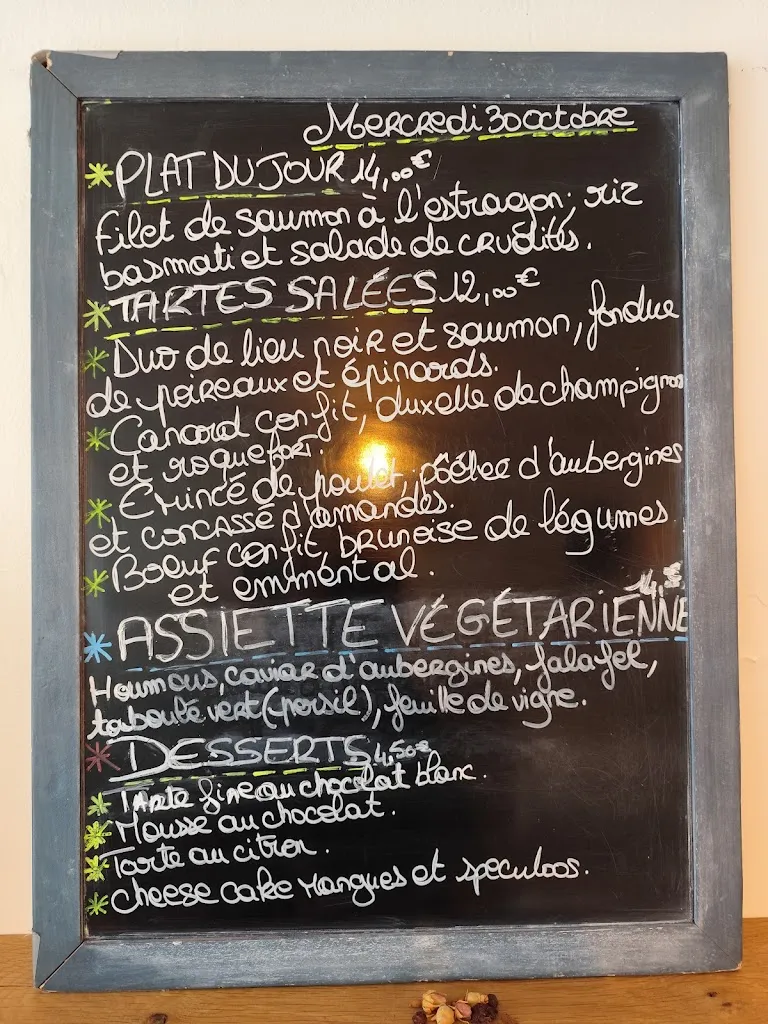 Mercredi 30 octobre
* PLAT DU JOUR 14,00€
Filet de saumon à l'estragon, riz
basmati et salade de crudités.
* TARTES SALÉES 12,00€
* Duo de lieu noir et saumon, fondue
de poireaux et épinards.
* Canard confit, duxelle de champignons
et roquefort.
* Émincé de poulet, poêlée d'aubergines
et concassé d'amandes.
* Boeuf confit, brunoise de légumes
et emmental.
* ASSIETTE VÉGÉTARIENNE 14,€
Houmous, caviar d'aubergines, falafel,
taboulé vert (persil), feuille de vigne.
* DESSERTS 4,50€
* Tarte fine au chocolat blanc.
* Mousse au chocolat.
* Tarte au citron.
* Cheese cake Mangues et speculoos.